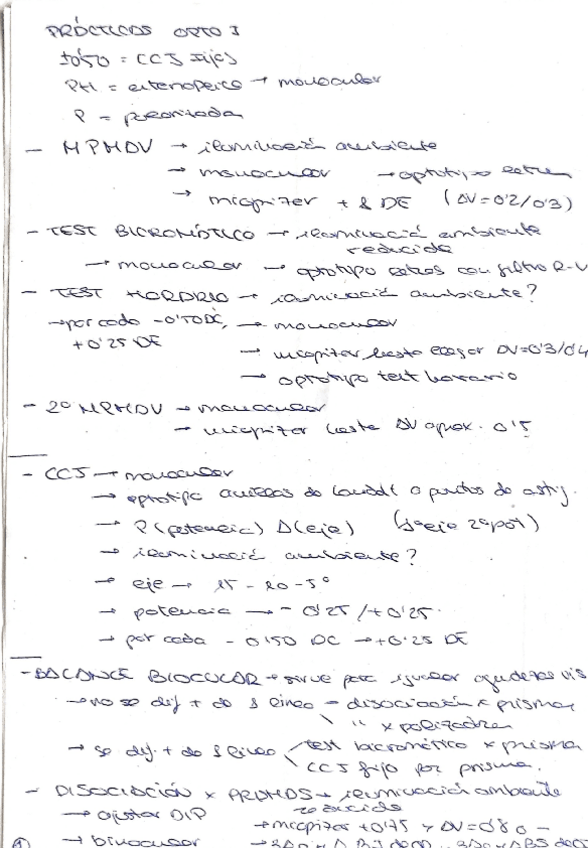 PRÁCTICOS OPTO I
±0'50 = CCJ fijos
PH = estenopeico → monocular
P = polarizada
- MPMAV → iluminación ambiente
→ monocular → optotipo letras
→ miopizar + 1 DE (AV=0'2/0'3)
- TEST BICROMÁTICO → iluminació ambiente
reducida
→ monocular → optotipo letras con filtro R-V
- TEST HORARIO → iluminació ambiente?
→ por cada -0'50 DC, → monocular
+0'25 DE
→ miopizar hasta coger AV=0'3/0'4
→ optotipo test horario
- 2º MPMAV → monocular
→ miopizar hasta AV aprox. 0'5
- CCJ → monocular
→ optotipo anillos de Landolt o puntos de astig.
→ P (potencia) A (eje) (1º eje 2º pot)
→ iluminació ambiente?
→ eje → 15 - 10 - 5º
→ potencia → -0'25 / +0'25
→ por cada -0'50 DC → +0'25 DE
- BALANCE BIOCULAR → sirve para igualar agudezas vis
→ no se dif + de 1 línea - disociación x prismas
\ " x polarizadas
→ se dif + de 1 línea / test bicromático x prisma
\ CCJ fijo por prisma.
- DISOCIACIÓN x PRISMAS → iluminación ambiente
reducida
→ ajustar DIP → miopizar +0'75 y AV=0'80 -
→ binocular